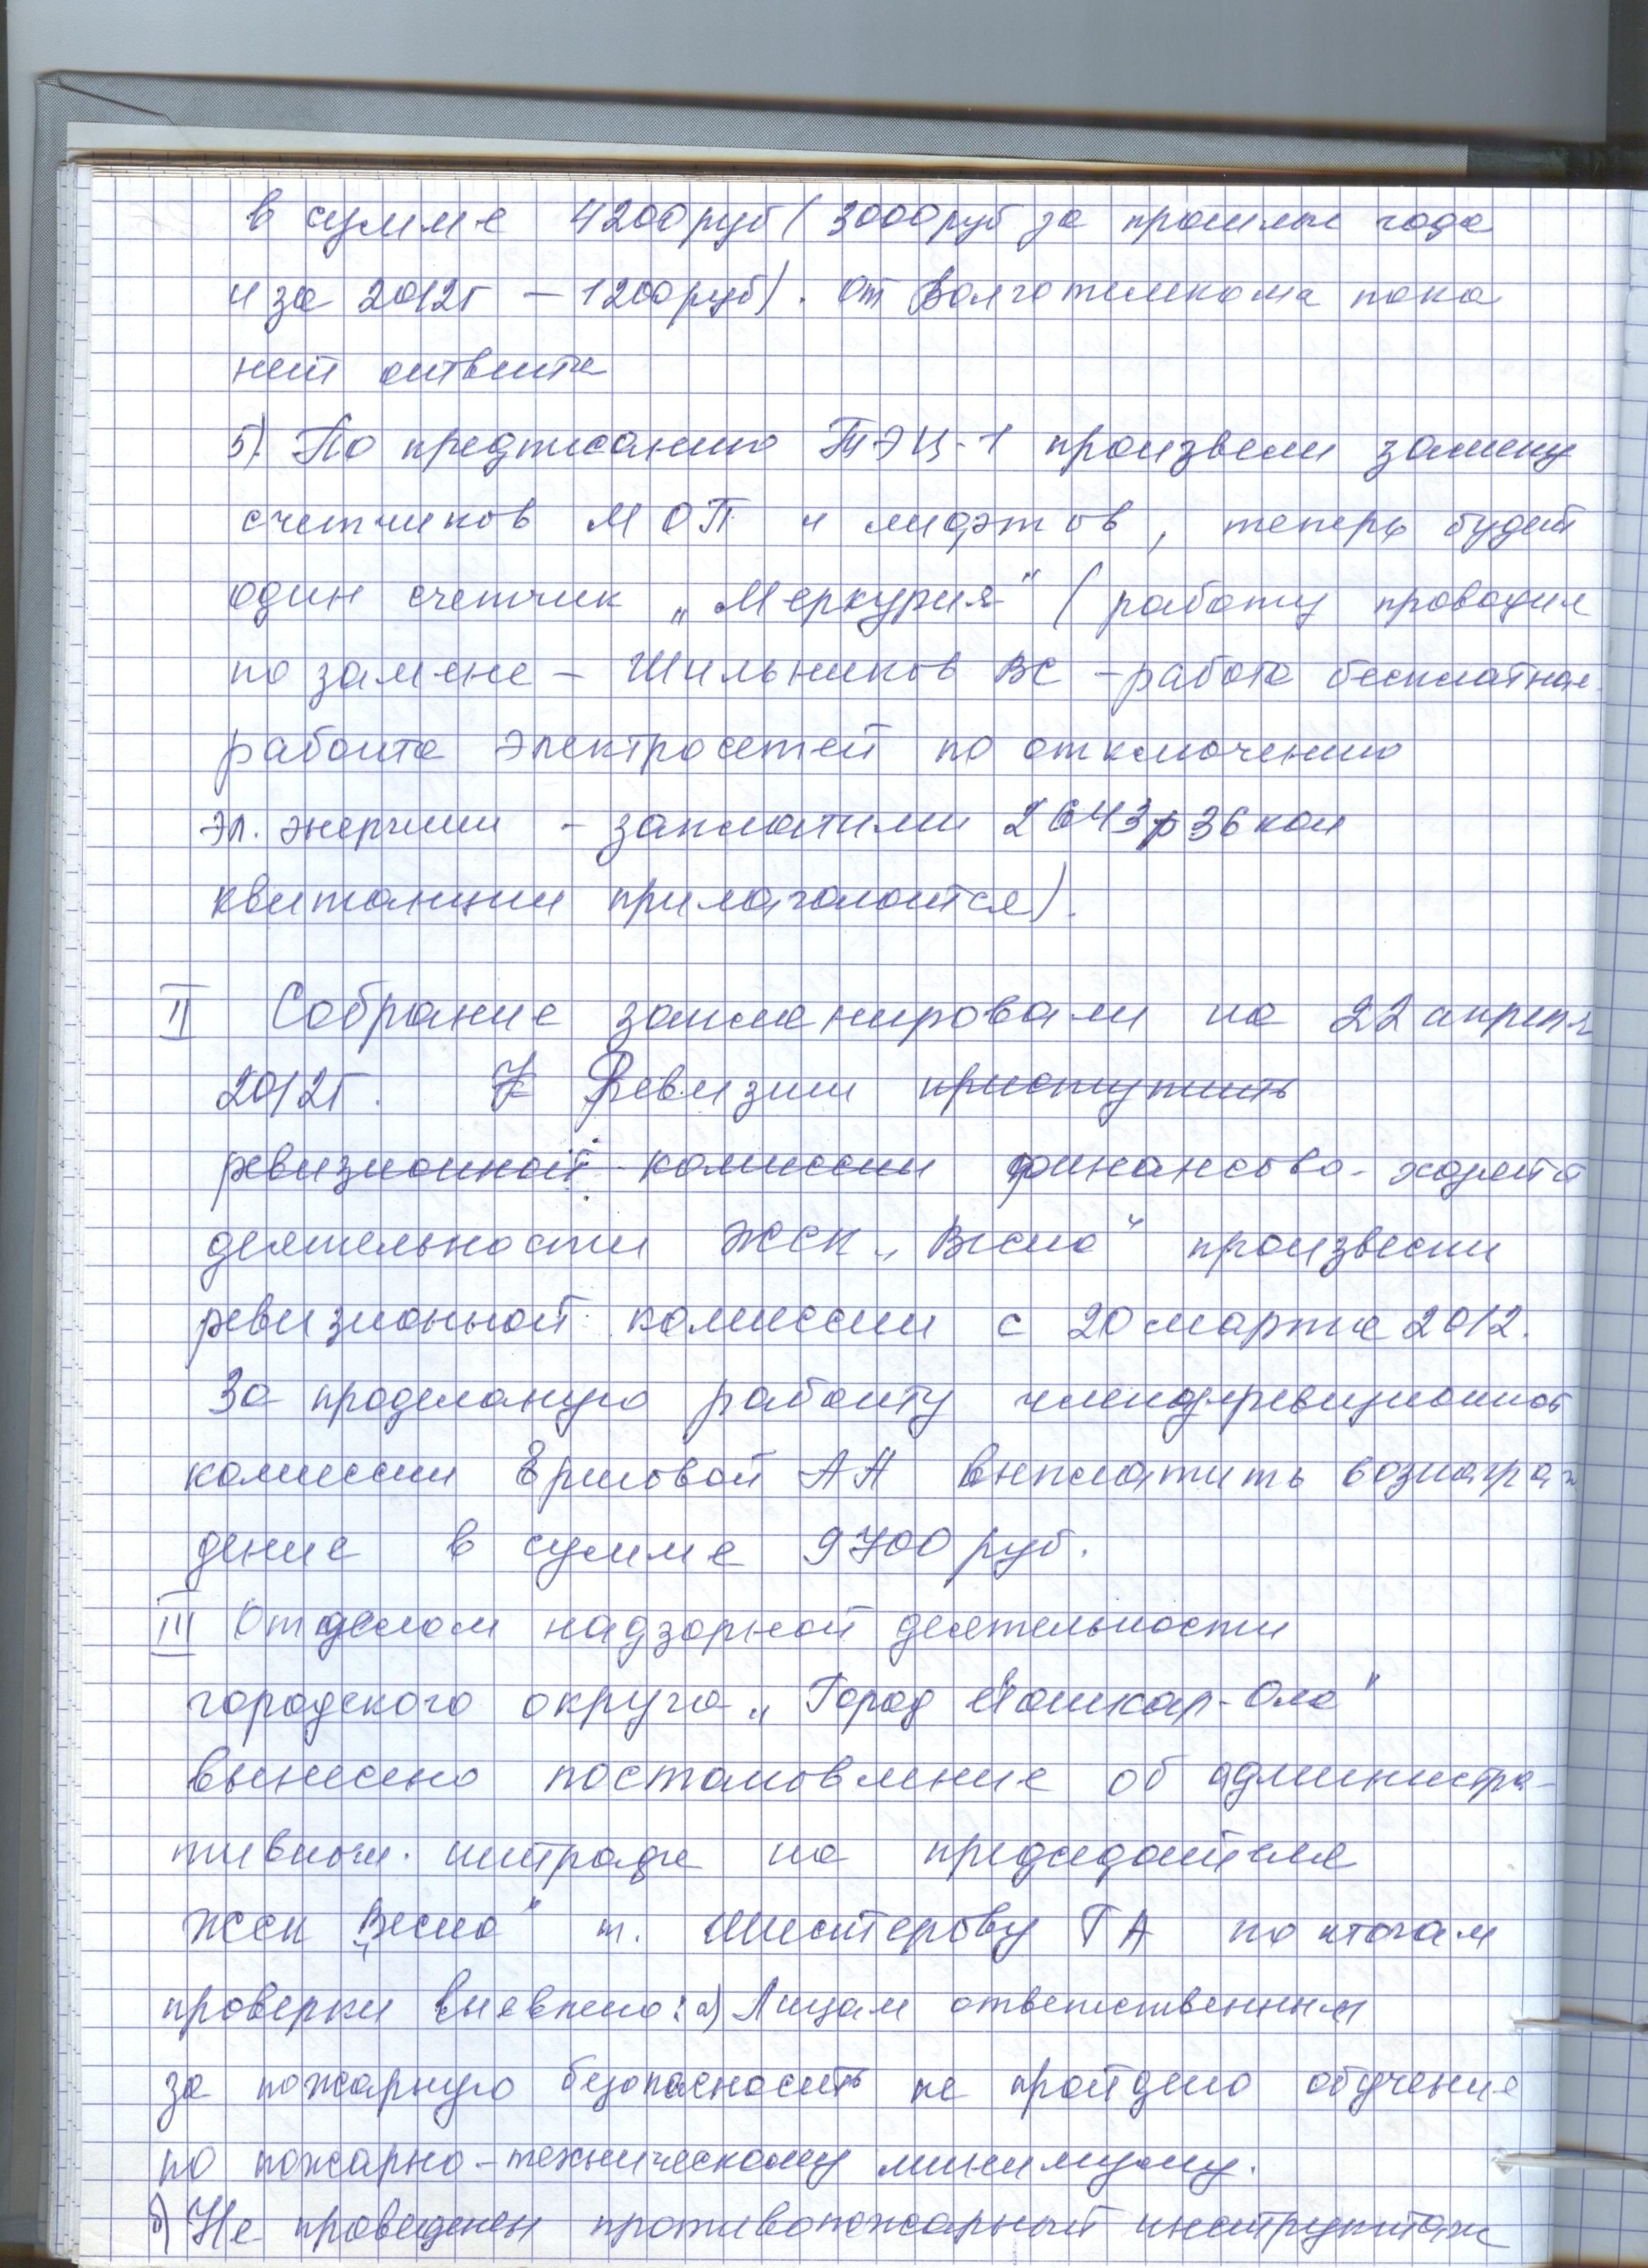 в сумме 4200руб (3000руб за прошлые года
и за 2012г – 1200руб). От Волготелекома пока
нет ответа
5). По предписанию ТЭЦ-1 произвели замену
счетчиков МОП и лифтов, теперь будет
один счетчик „Меркурия" (работу проводил
по замене – Шильников ВС – работа бесплатная
работа электросетей по отключению
эл. энергии – заплатили 2643р36коп
квитанции прилагаются).
II Собрание запланировали на 22 апреля
2012г. К Ревизии приступить
ревизионной комиссии финансово-
деятельности ЖСК „Весна" произвести
ревизионной комиссии с 20 марта 2012.
За проделаную работу ревизионной
комиссии Ершовой АА выплатить вознаграж
дение в сумме 9700 руб.
III Отделом надзорной деятельности
городского округа „Город Йошкар-Ола"
вынесено постановление об администра-
тивном штрафе на председателя
ЖСК „Весна" т. Шестерову ГА по итогам
проверки выявлено: а) Лицам ответственным
за пожарную безопасность не пройдено обучение
по пожарно-техническому минимуму.
б) Не проведенен противопожарный инструктаж